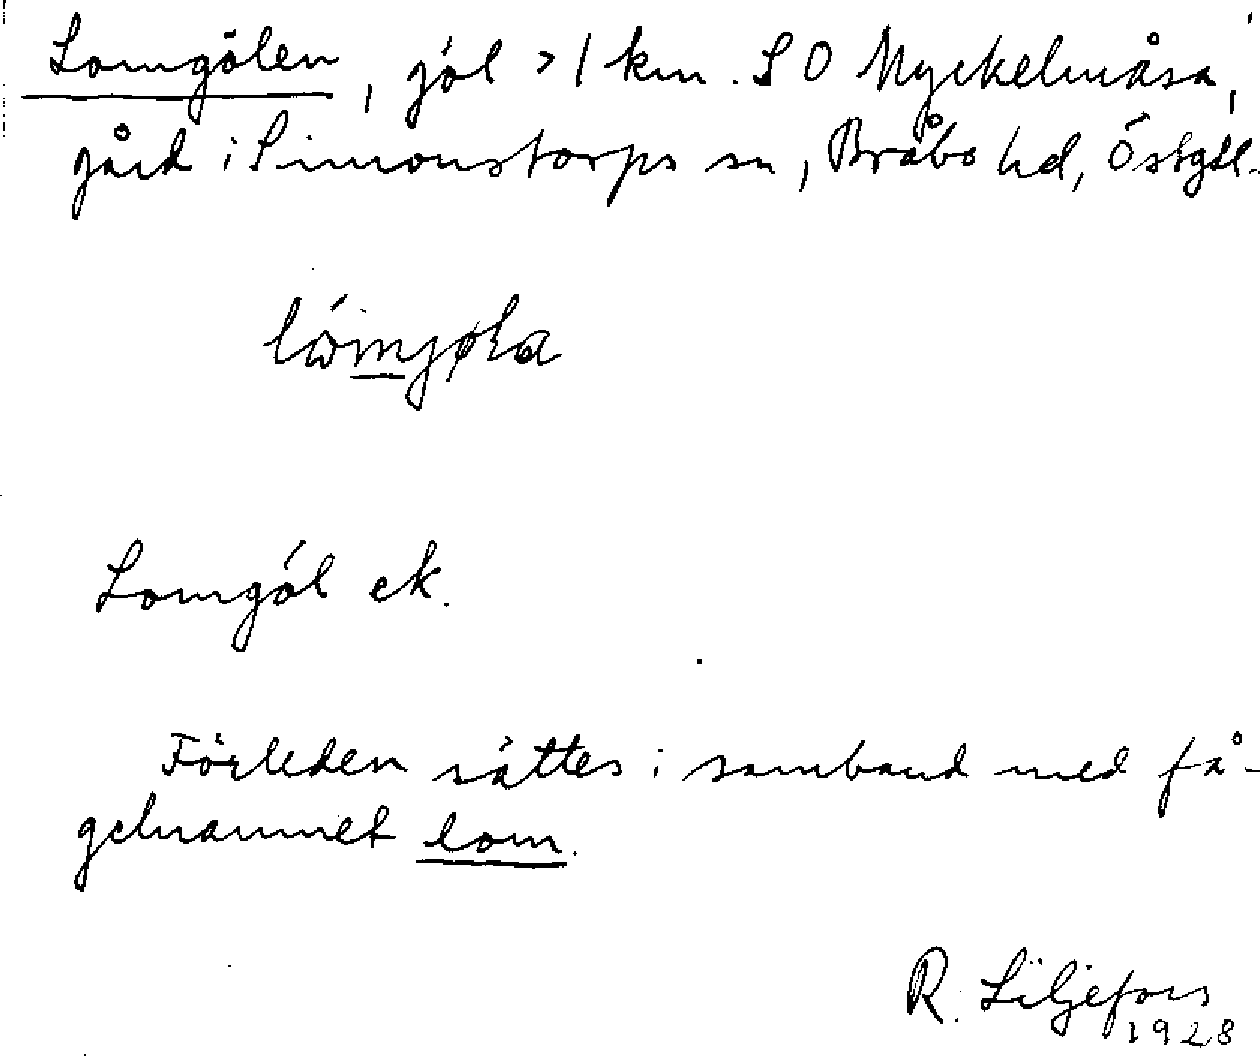 Lomgölen, göl > 1 km. SO Myckelmåsa,
gård i Simonstorps sn, Bråbo hd, Östgöt.
Lomgöl ek.
Förleden sättes i samband med få-
gelnamnet lom.
R. Liljefors
1928